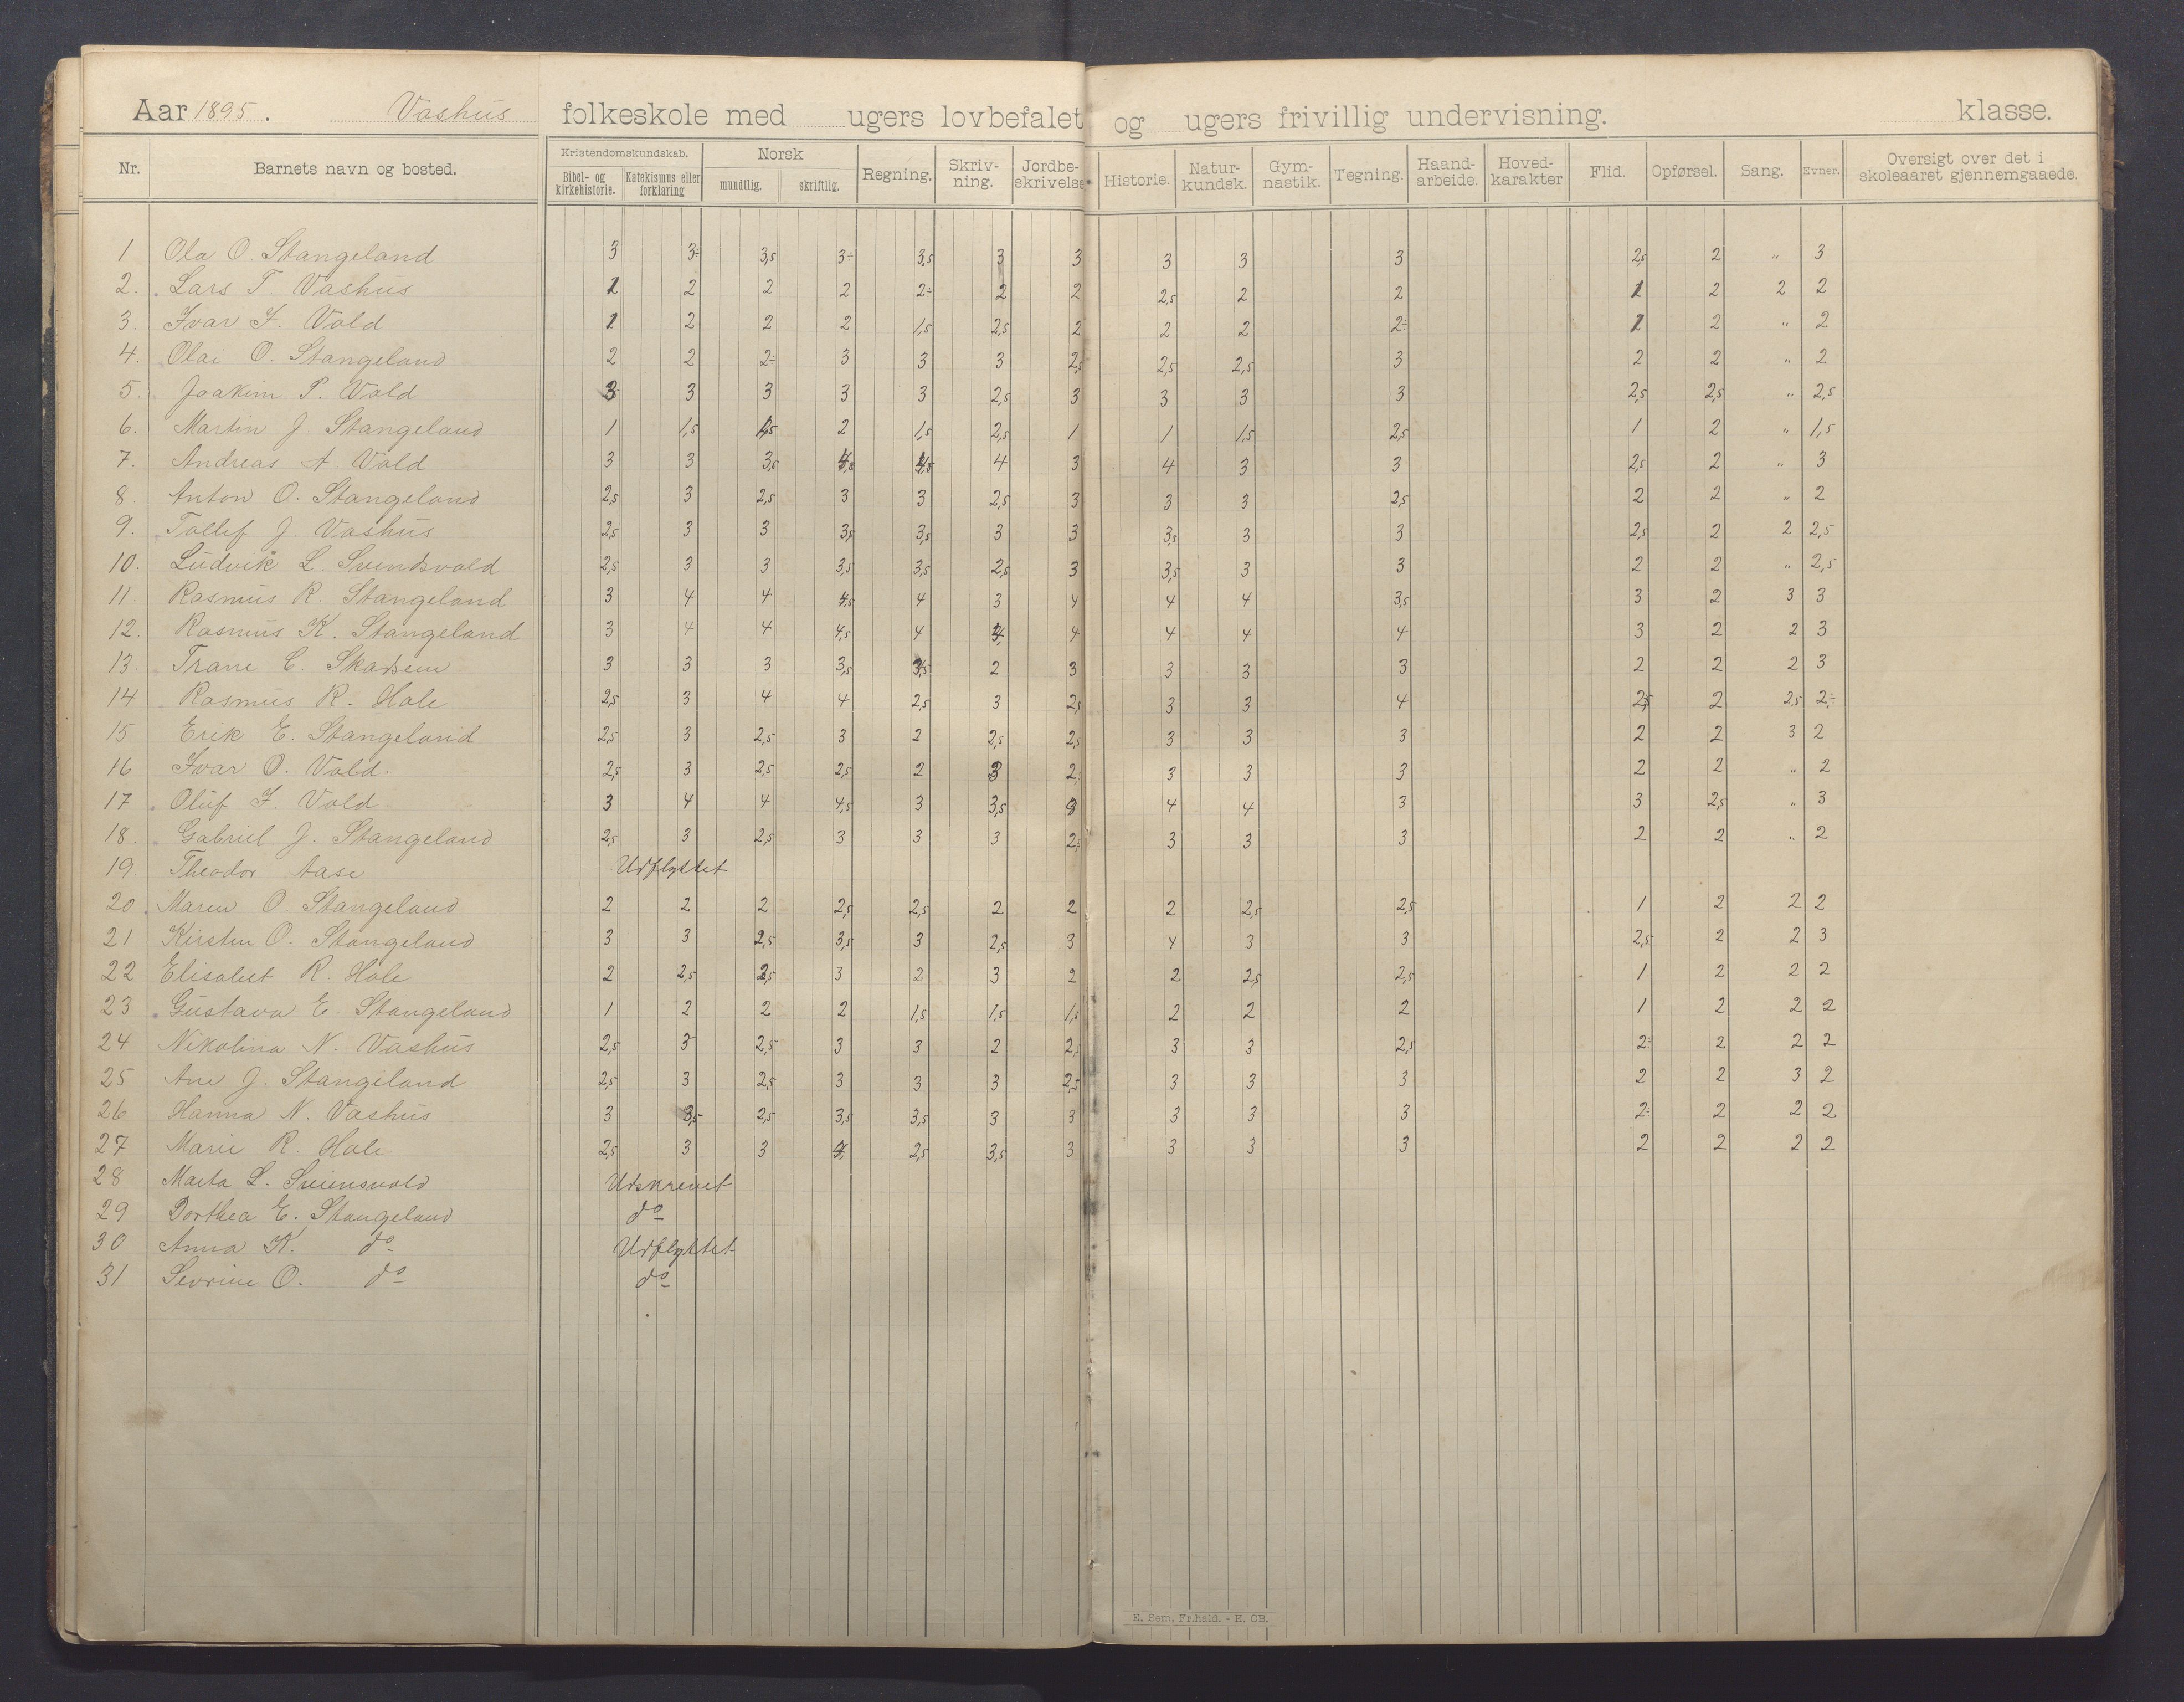 Aar 1895. Vashus folkeskole med ugers lovbefalet og ugers frivillig undervisning. klasse.
Nr. Barnets navn og bosted. Kristendomskundskab. Bibel- og kirkehistorie. Katekismus eller forklaring Norsk mundtlig. skriftlig. Regning. Skriv-ning. Jordbe-skrivelse Historie. Natur-kundsk. Gym-nastik. Tegning. Haand-arbeide. Hoved-karakter Flid. Opførsel. Sang. Evner. Oversigt over det i skoleaaret gjennemgaaede.
1 Ola O. Stangeland 3 3÷ 3,5 3÷ 3,5 3 3 3 3 3 2,5 2 „ 3
2. Lars T. Vashus 1 2 2 2 2÷ 2 2 2,5 2 2 1 2 2 2
3. Ivar I. Vold 1 2 2 2 1,5 2,5 2 2 2 2÷ 1 2 „ 2
4. Olai O. Stangeland 2 2 2÷ 3 3 3 2,5 2,5 2,5 3 2 2 „ 2
5. Joakim P. Vold 3 3 3 3 3 2,5 3 3 3 3 2,5 2,5 „ 2,5
6. Martin J. Stangeland 1 1,5 1,5 2 1,5 2,5 1 1 1,5 2,5 1 2 „ 1,5
7. Andreas A. Vold 3 3 3,5 4,5 4,5 4 3 4 3 3 2,5 2 „ 3
8. Anton O. Stangeland 2,5 3 2,5 3 3 2,5 3 3 3 2,5 2 2 „ 2
9. Tollef J. Vashus 2,5 3 3 3,5 3,5 3 3 3,5 3 3 2,5 2 2 2,5
10. Ludvik L. Svendsvold 2,5 3 3 3,5 3,5 2,5 3 3,5 3 3 2 2 „ 2,5
11. Rasmus R. Stangeland 3 4 4 4,5 4 3 4 4 4 3,5 3 2 3 3
12. Rasmus K. Stangeland 3 4 4 4,5 4 4 4 4 4 3 2 2 3
13. Trane C. Skadsem 3 3 3 3,5 3,5 2 3 3 3 3 2 2 2 3
14 Rasmus R. Hole 2,5 3 4 4 2,5 3 2,5 3 3 4 2,5 2 2,5 2÷
15 Erik E. Stangeland 2,5 3 2,5 3 2 2,5 2,5 3 3 3 2 2 3 2
16 Ivar O. Vold. 2,5 3 2,5 2,5 2 3 2, 3 3 3 2 2 „ 2
17 Oluf I. Vold 3 4 4 4,5 3 3,5 3 4 4 3 3 2,5 „ 3
18. Gabriel J. Stangeland 2,5 3 2,5 3 3 3 2,5 3 3 3 2 2 „ 2
19. Theodor Aase Udflyttet
20. Maren O. Stangeland 2 2 2 2,5 2,5 2 2 2 2,5 2,5 1 2 2 2
21 Kirsten O. Stangeland 3 3 2,5 3,5 3 2,5 3 4 3 3 2,5 2 2 3
22 Elisabet R. Hole 2 2,5 2,5 3 2 3 2 2 2,5 2,5 1 2 2 2
23 Gustava E. Stangeland 1 2 2 2 1,5 1,5 1,5 2 2 2 1 2 2 2
24 Nikolina N. Vashus 2,5 3 2,5 3 3 2 2,5 3 3 2,5 2÷ 2 2 2
25 Ane J. Stangeland 2,5 3 2,5 3 3 3 2,5 3 3 3 2 2 3 2
26 Hanna N. Vashus 3 3,5 2,5 3,5 3,5 3 3 3 3 3 2÷ 2 2 2
27 Marie R. Hole 2,5 3 3 4 2,5 3,5 3 3 3 3 2 2 2 2
28 Marta L. Sveinsvold Udskrevet
29 Dorthea E. Stangeland do
30 Anna K. do Udflyttet
31 Sevrine O. do do
E. Sem, Fr.hald. - E. CB.